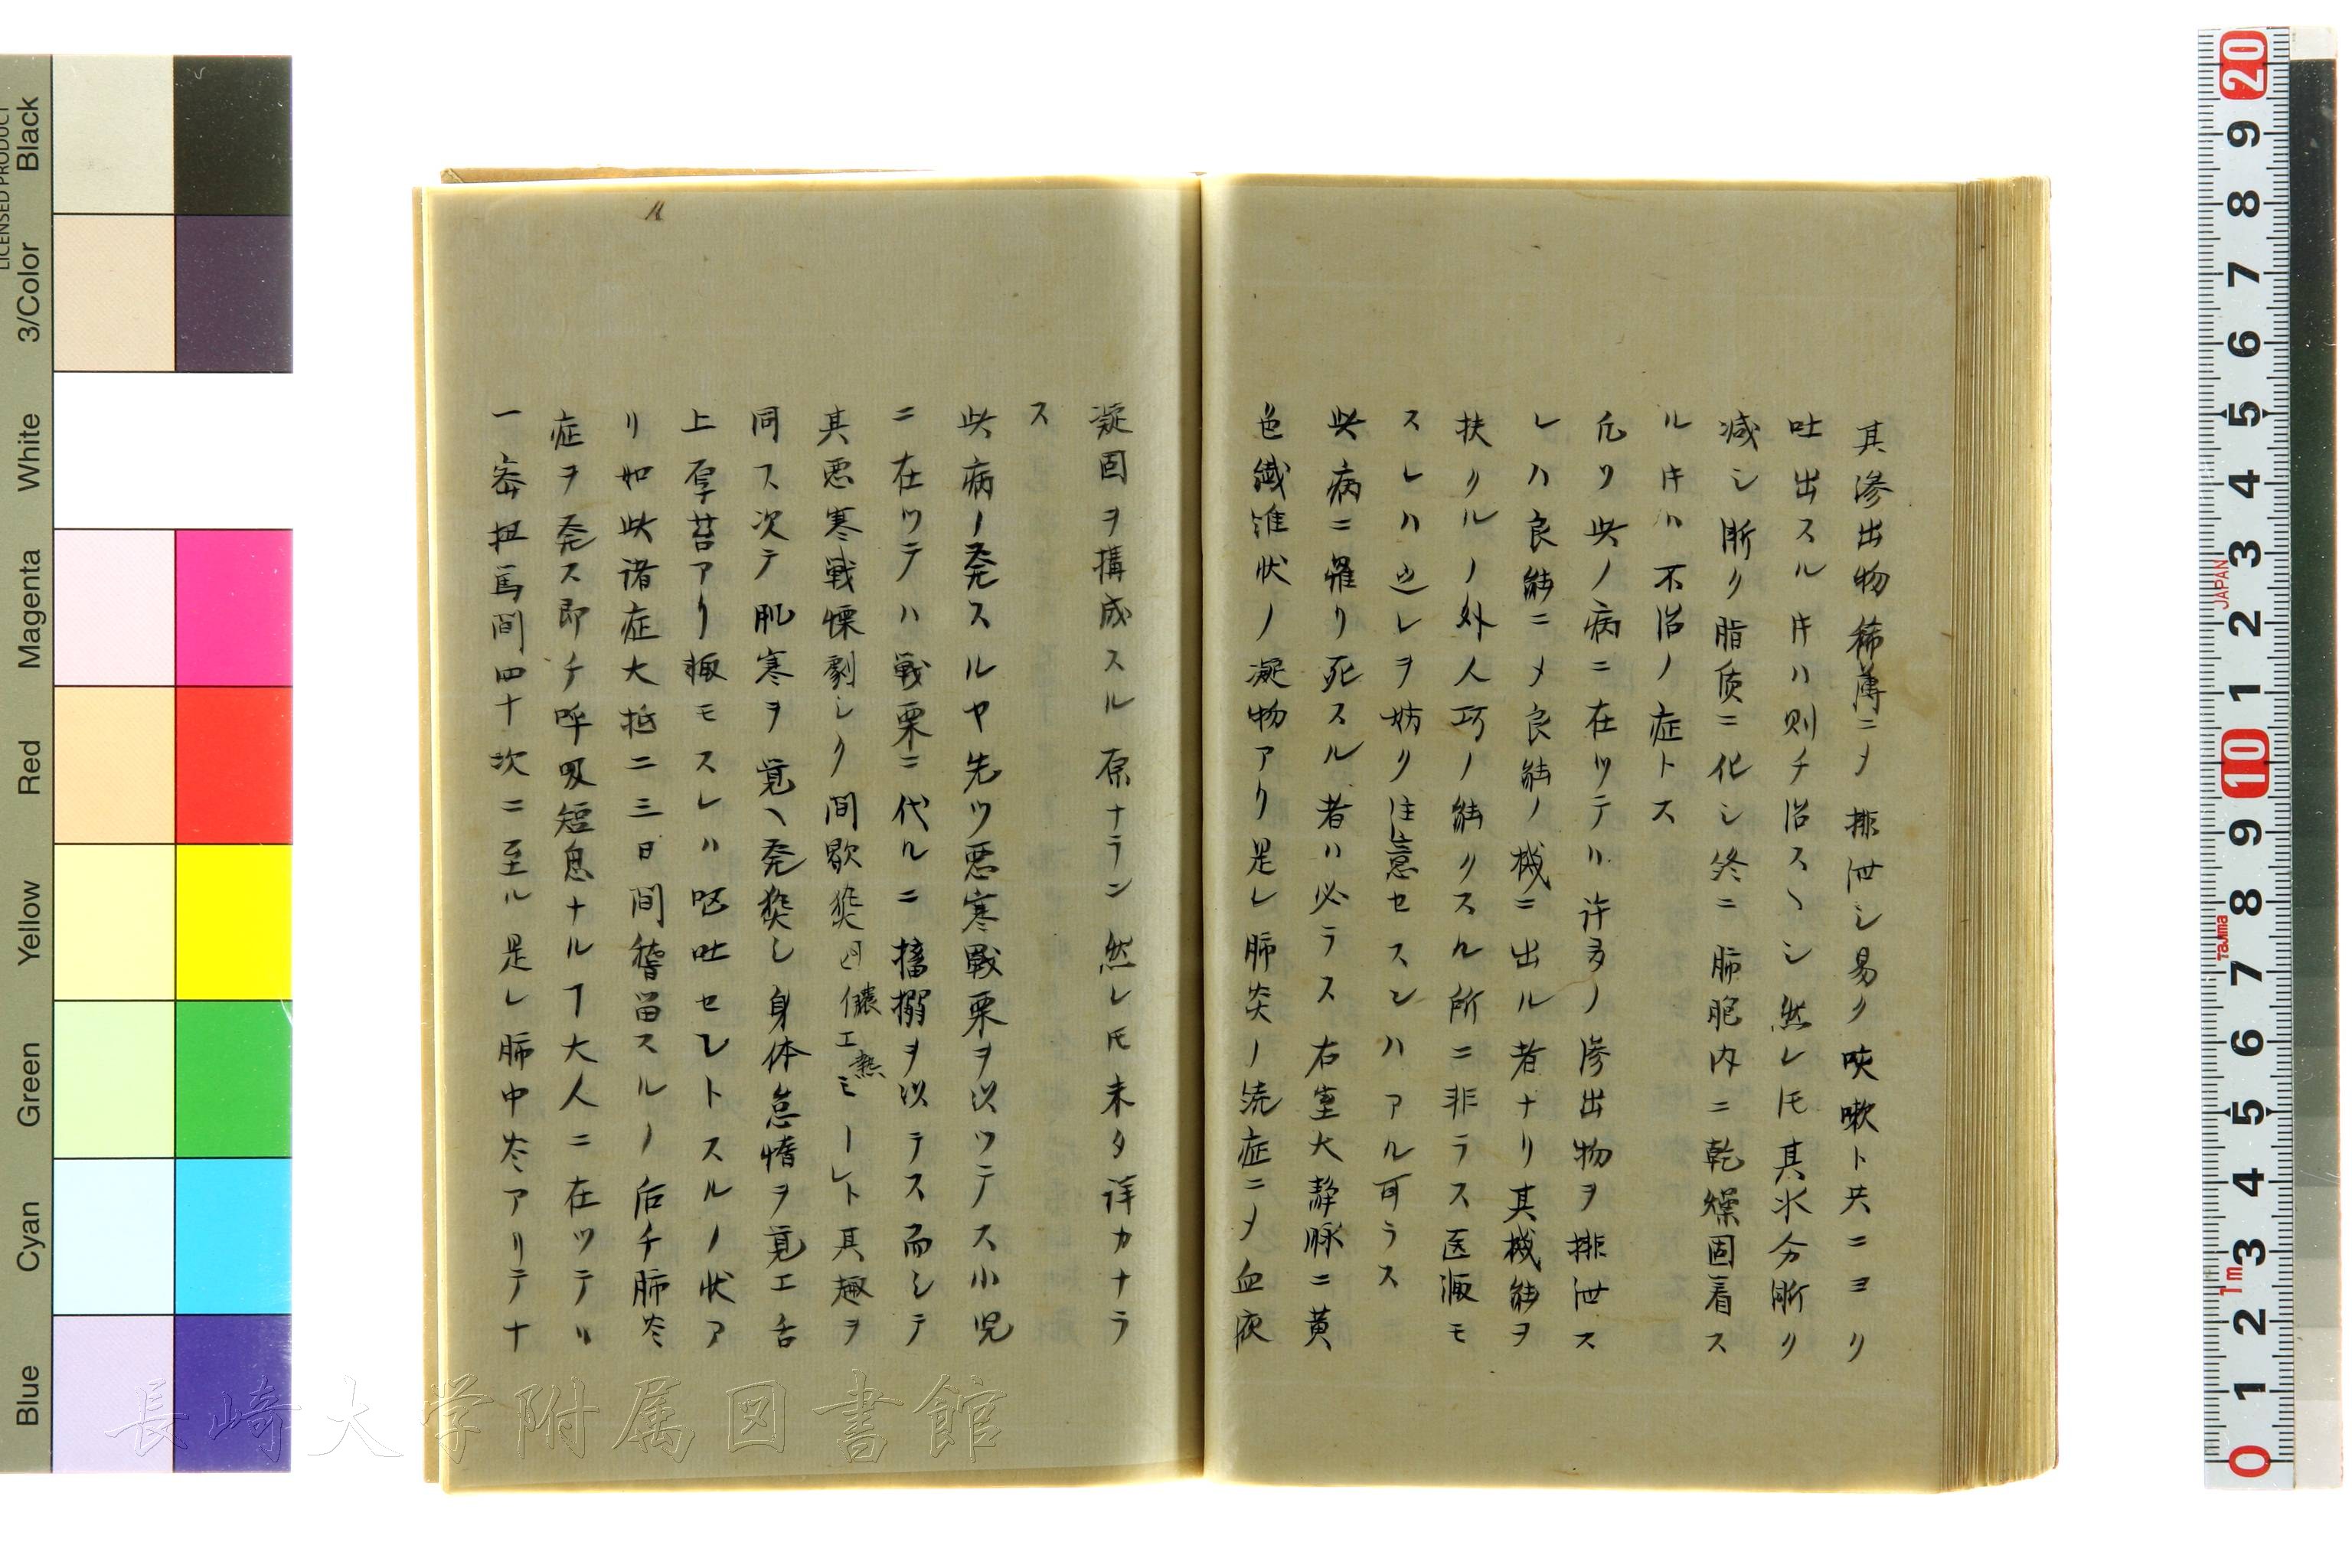 其滲出物稀薄ニ〆排泄シ易ク咳嗽ト共ニヨリ
吐出スル片ハ則チ治スヘシ然レ𪜈其水分漸ク
减シ漸ク脂质ニ化シ終ニ肺胞内ニ乾燥固着ス
ル片ハ不治ノ症トス
凢ソ此ノ病ニ在ツテハ许多ノ滲出物ヲ排泄ス
レハ良能ニ〆良能ノ機ニ出ル者ナリ其機能ヲ
扶クルノ外人巧ノ能クスル所ニ非ラス医溆モ
スレハ之レヲ妨ク注意セスンハアル可ラス
此病ニ罹リ死スル者ハ必ラス右室大静脉ニ黄
色纖維状ノ凝物アリ是レ肺炎ノ続症ニ〆血液
凝固ヲ搆成スル原ナラン然レ𪜈未タ詳カナラ
ス
此病ノ発スルヤ先ツ悪寒戰栗ヲ以ツテス小児
ニ在ツテハ戦栗ニ代ルニ搐搦ヲ以テス而シテ
其悪寒戦慄劇シク間歇熱 膿エ熱ミーレト其趣ヲ
同ス次テ肌寒ヲ覚ヘ発熱シ身体怠惰ヲ覚エ舌
上厚苔アリ輙モスレハ呕吐セントスルノ状ア
リ如此诸症大抵二三日間稽留スルノ后チ肺炎
症ヲ発ス即チ呼吸短息ナルヿ大人ニ在ツテハ
一密扭馬間四十次ニ至ル是レ肺中炎アリテナ
長崎大学附属図書館
LICENSED PRODUCT
Black
3/Color
White
Magenta
Red
Yellow
Green
Cyan
Blue
20
9
8
7
6
5
4
3
2
1
10
9
8
7
6
5
4
3
2
1
0
JAPAN
Tajima
1m